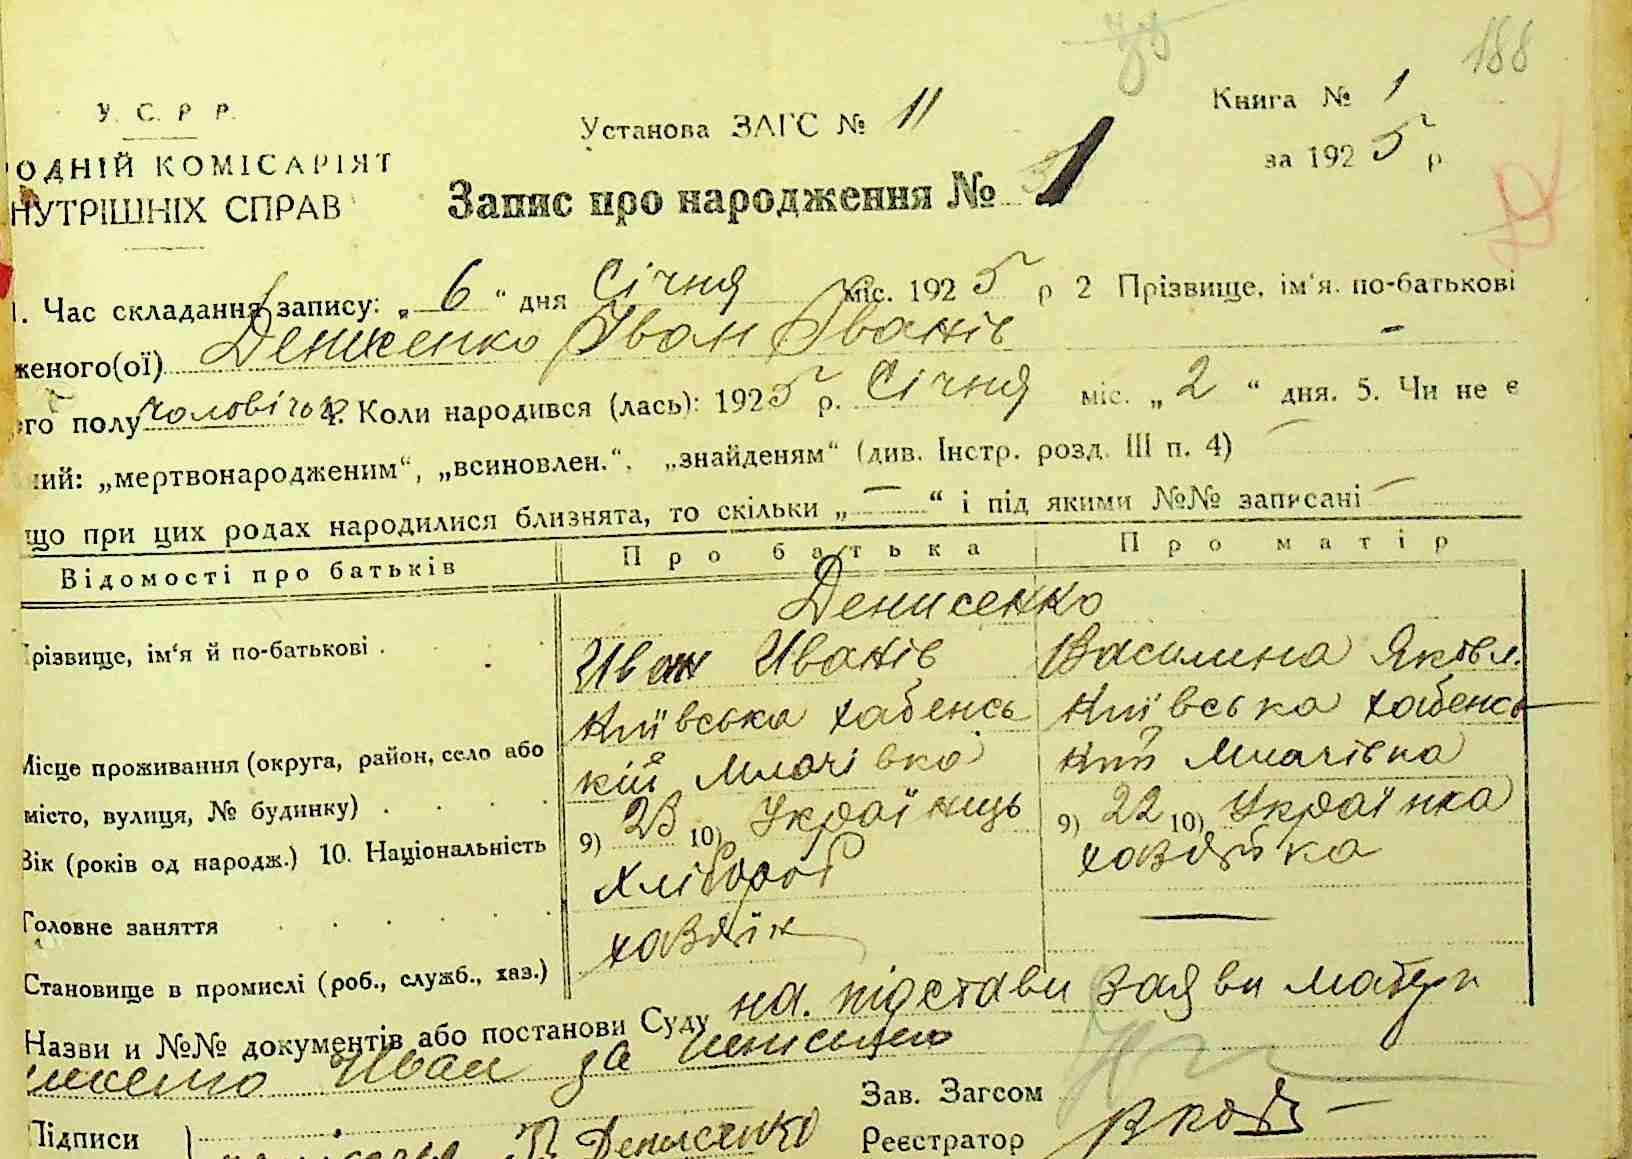 188
У. С. Р. Р.
Установа ЗАГС № 11
Книга № 1
за 1925 р
ОДНІЙ КОМІСАРІЯТ
НУТРІШНІХ СПРАВ
Запис про народження № 1
1. Час складання запису: „ 6 “ дня Січня міс. 1925 р 2 Прізвище, ім'я. по-батькові
женого(ої) Денисенко Іван Іванів -
его полу чоловічья 4. Коли народився (лась): 1925 р. Січня міс. „ 2 “ дня. 5. Чи не є
ний: „мертвонародженим“, „всиновлен.“, „знайденям“ (див. Інстр. розд. III п. 4) —
що при цих родах народилися близнята, то скільки „ — “ і під якими №№ записані —
Відомості про батьків Про батька Про матір
Денисенко
Прізвище, ім'я й по-батькові . Иван Иванів Василина Яковл.
Київська Хабенсь Київська Хабенсь
Місце проживання (округа, район, село або кій Млачівка кий Млачівка
місто, вулиця, № будинку)
Вік (років од народж.) 10. Національність 9) 23 10) Українць 9) 22 10) Українка
Головне заняття Хлібороб хозяйка
Становище в промислі (роб., служб., хаз.) хозяїн —
Назви и №№ документів або постанови Суду на. підстави заяви матери
Иван за
Зав. Загсом
Підписи Денисенко
Реєстратор